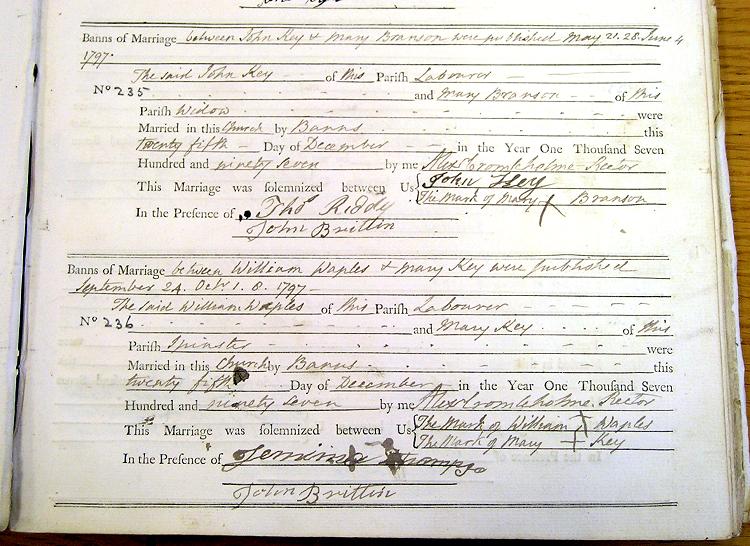 Banns of Marriage between John Key & Mary Branson were published May 21. 28. June 4
1797.
The said John Key of this Parish Labourer
No 235 and Mary Branson of this
Parish Widow were
Married in this Church by Banns this
twenty fifth Day of December in the Year One Thousand Seven
Hundred and ninety seven by me Alexr Cromleholme Rector
This Marriage was solemnized between Us { John Key
The Mark of Mary X Branson
In the Presence of Thos Riddy
John Brittin
Banns of Marriage between William Waples & Mary Key were published
September 24. Octr 1. 8. 1797
The said William Waples of this Parish Labourer
No 236 and Mary Key of this
Parish Spinster were
Married in this Church by Banns this
twenty fifth Day of December in the Year One Thousand Seven
Hundred and ninety seven by me Alexr Cromleholme Rector
This Marriage was solemnized between Us { The Mark of William + Waples
The Mark of Mary + Key
In the Presence of Jemima
John Brittin